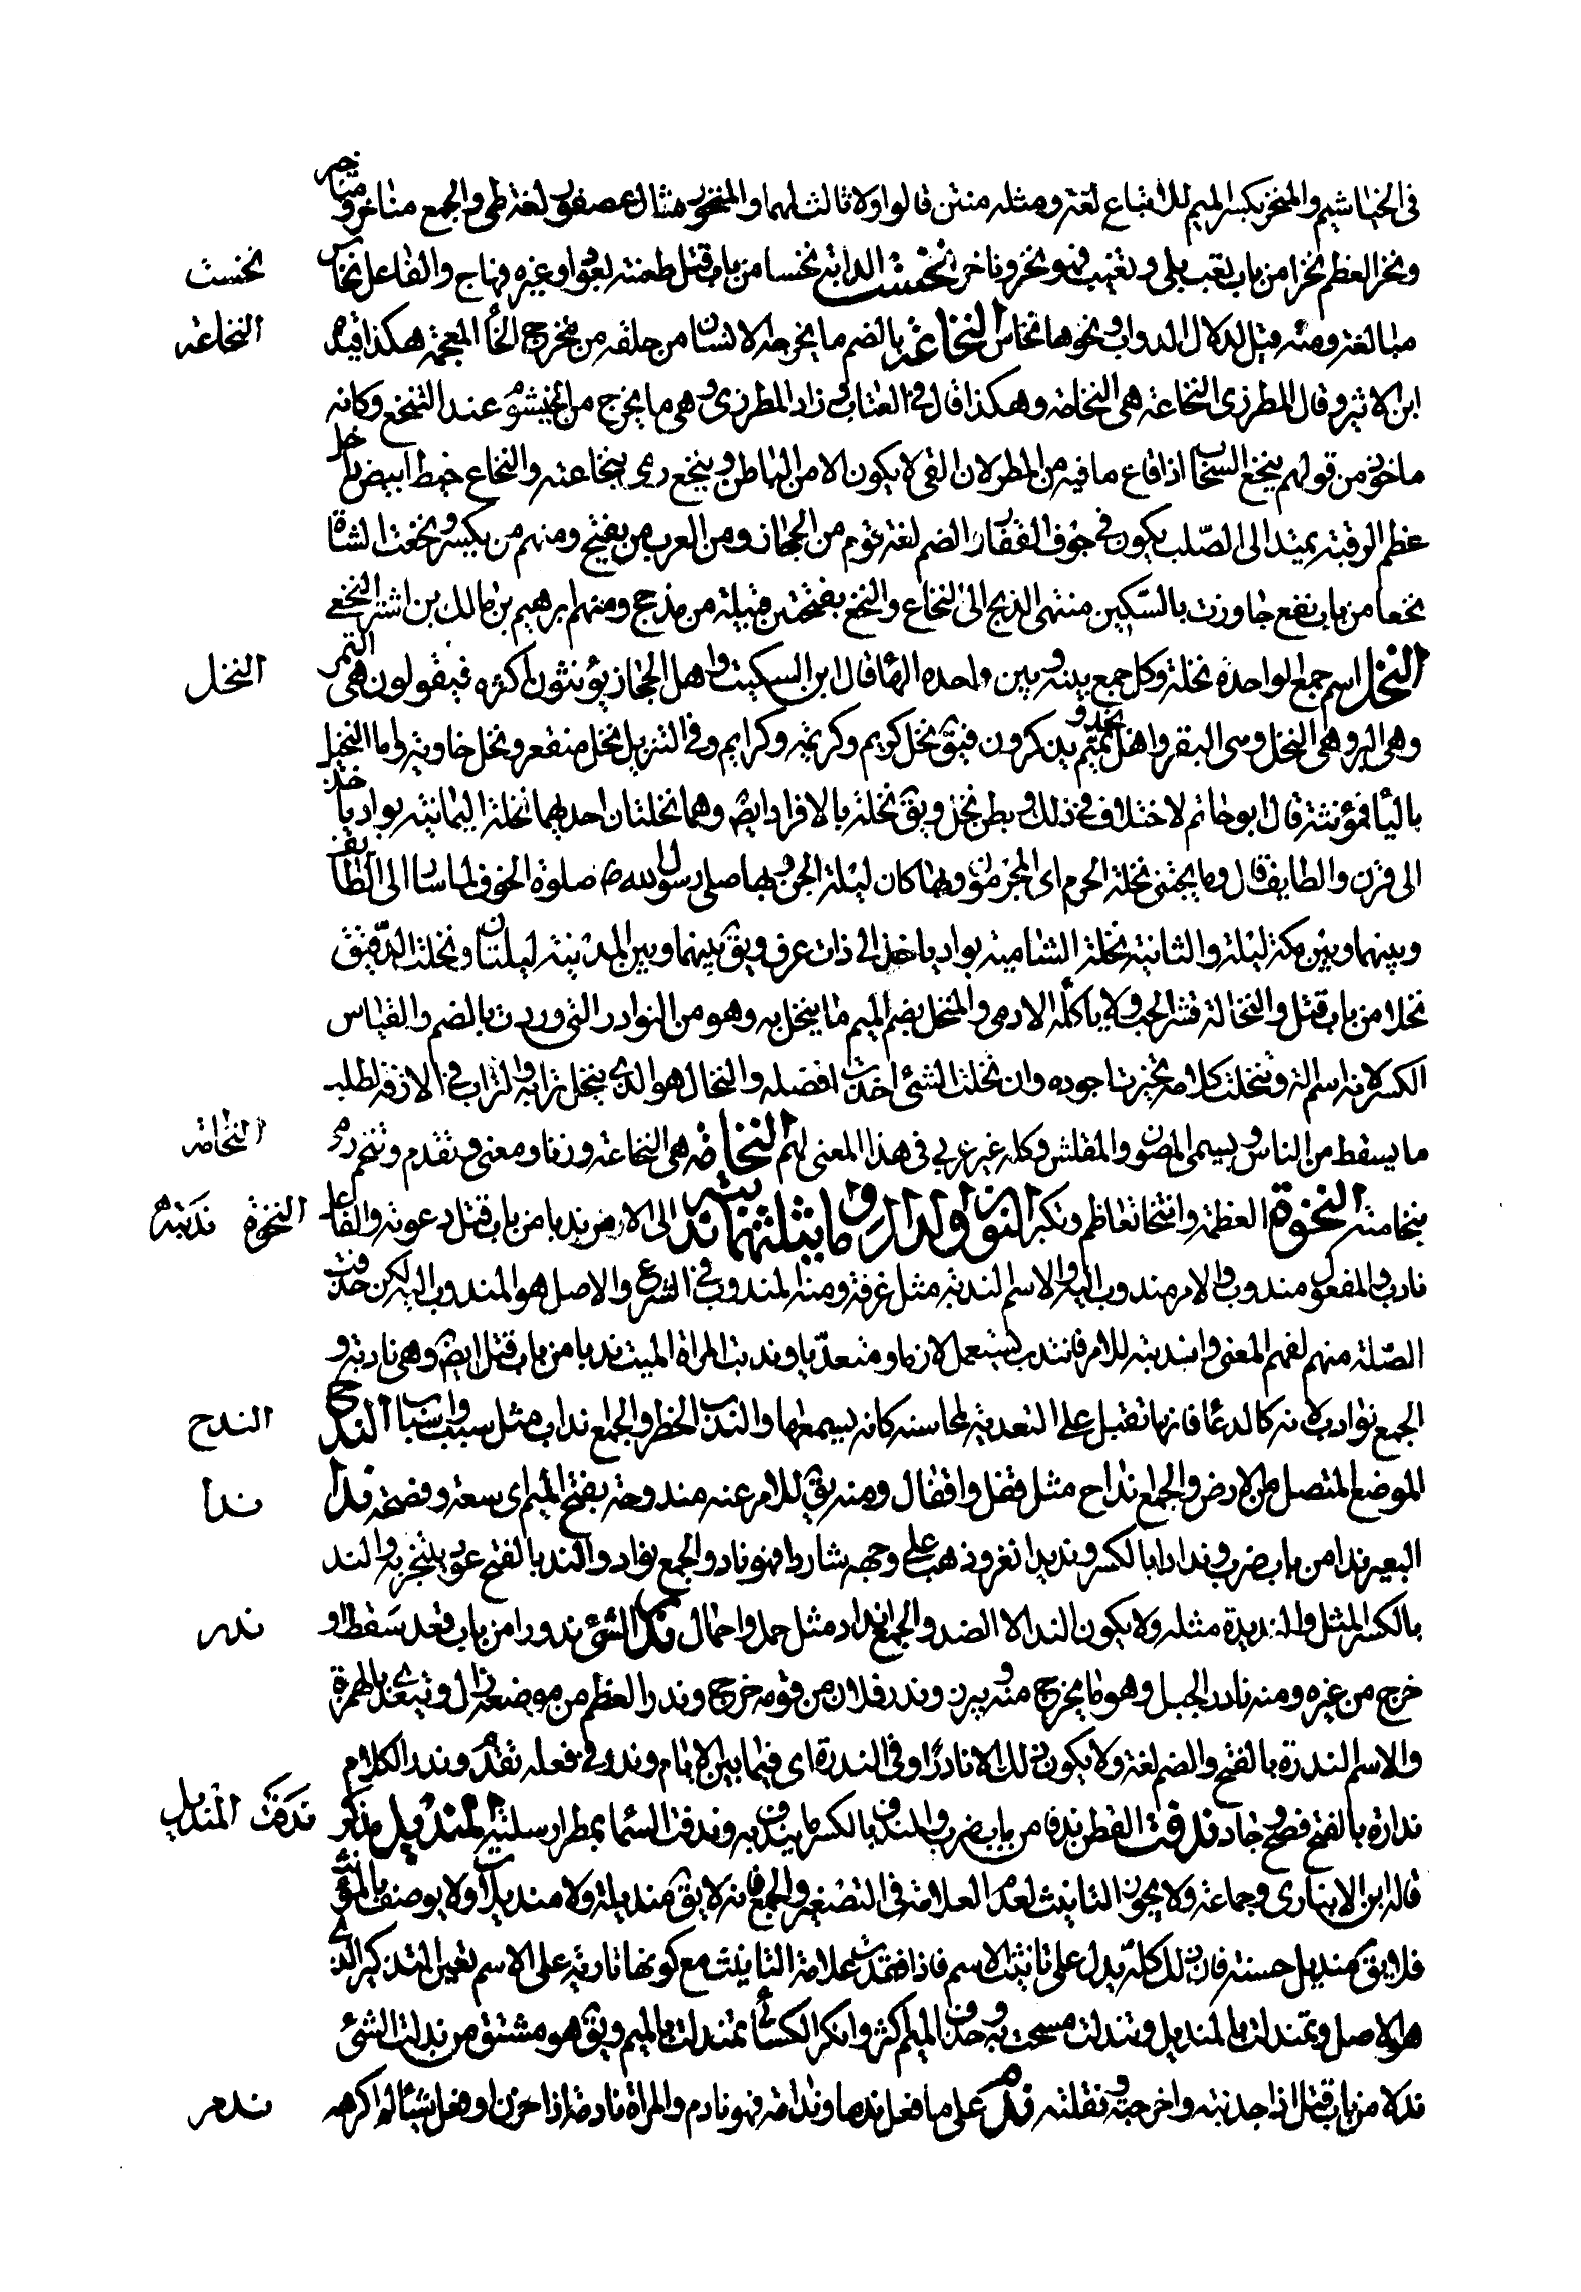 في الخياشيم والمنخر بكسر الميم للاتباع لغة ومثله منتن قالوا ولا ثالث لهما والمنخور مثال عصفور لغة طي والجمع مناخر ومناخير
ونخر العظم نخرا من باب تعب بلى وتفتت فهو نخر وناخر نخست الدابة نخسا من باب قتل طعنته بعود او غيره فهاج والفاعل نخاس
مبالغة ومنه قيل لدلال الدواب ونحوها نخاس النخاعة بالضم ما يخرجه الانسان من حلقه من مخرج الخاء المعجمة هكذا قيده
ابن الاثير وقال المطرزي النخاعة هي النخامة وهكذا قال في العباب وزاد المطرزي وهي ما يخرج من الخيشوم عند التنخع وكانه
ماخوذ من قولهم تنخع السحاب اذا قاء ما فيه من المطر لان القي لا يكون الا من الباطن وتنخع رمى بنخاعته والنخاع خيط ابيض داخل
عظم الرقبة يمتد الى الصلب يكون في جوف الفقار والضم لغة قوم من الحجاز ومن العرب من يفتح ومنهم من يكسر ونخعت الشاة
نخعا من باب نفع جاوزت بالسكين منتهى الذبح الى النخاع والنخع بفتحتين قبيلة من مذحج ومنهم ابرهيم بن مالك بن اشتر النخعي
النخل اسم جمع الواحدة نخلة وكل جمع بينه وبين واحده الهاء قال ابن السكيت واهل الحجاز يؤنثون اكثره فيقولون هي التمر
وهي البر وهي النخل وهي البقر واهل نجد وتميم يذكرون فيق نخل كريم وكريمة وكرايم وفي التنزيل نخل منقعر ونخل خاوية واما النخيل
بالياء فمؤنثة قال ابو حاتم لا اختلاف في ذلك وبطن نخل ويق نخلة بالافراد ايض وهما نخلتان احديهما نخلة اليمانية بواد ياخذ
الى قرن والطايف قال وما يجتنى نخلة الحرم اى المجرمون وبها كان ليلة الجن وبها صلى رسول الله ص صلوة الخوف لما سار الى الطائف
وبينها وبين مكة ليلة والثانية نخلة الشامية بواد ياخذ الى ذات عرق ويق بينها وبين المدينة ليلتان ونخلت الدقيق
نخلا من باب قتل والنخالة قشر الحب ولا ياكله الادمي والمنخل بضم الميم ما ينخل به وهو من النوادر التي وردت بالضم والقياس
الكسر لانه اسم الة وتنخلت كلامه تخيرت اجوده وانتخلت الشئ اخذت افضله والنخال هو الذي ينخل ترابه والتراب في الازقة لطلب
ما يسقط من الناس ويسمى المصول والمقلش وكله غير عربي في هذا المعنى النخامة هي النخاعة وزنا ومعنى وتقدم وتنخم رمى
بنخامته النخوة العظمة وانتخى تعاظم وتكبر النون والدال وما يثلثهما ندبته الى الامر ندبا من باب قتل دعوته والفاعل
نادب والمفعول مندوب والامر مندوب اليه والاسم الندبة مثل غرفة ومنه المندوب في الشرع والاصل هو المندوب اليه لكن حذفت
الصلة منهم لفهم المعنى وانتدبته للامر فانتدب يستعمل لازما ومتعديا وندبت المراة الميت ندبا من باب قتل ايض وهي نادبة و
الجمع نوادب لانه كالدعاء فانها تقبل على التعديد لمحاسنه كانه يسمعها والندب الخطر والجمع انداب مثل سبب واسباب الندح
الموضع المتصل من الارض والجمع انداح مثل قفل واقفال ومنه يق للامر عنه مندوحة بفتح الميم اى سعة وفسحة ندا
البعير ندا من باب ضرب وندادا بالكسر ونديدا نفر وذهب على وجهه شاردا فهو ناد والجمع نواد والند بالفتح عود يتبخر به والند
بالكسر المثل والنديدة مثله ولا يكون الند الا الضد والجمع انداد مثل حمل واحمال ندر الشئ ندورا من باب قعد سقط او
خرج من غيره ومنه نادر الجبل وهو ما يخرج منه ويبرز وندر فلان من قومه خرج وندر العظم من موضعه زال ويتعدى بالهمزة
والاسم الندرة بالفتح والضم لغة ولا يكون ذلك الا نادرا وفي الندرة اى فيما بين الايام وندر في فعله تقدم وندر الكلام
ندارة بالفتح فصح وجاد ندفت القطن ندفا من باب ضرب والمندف بالكسر ما يندف به وندفت السماء بمطر ارسلته المنديل مذكر
قاله ابن الانباري وجماعة ولا يجوز التانيث لعدم العلامة في التصغير والجمع فانه لا يق منيديلة ولا منديلات ولا يوصف بالمؤنث
فلا يق منديل حسنة فان ذلك كله يدل على تانيث الاسم فاذا فقدت علامة التانيث مع كونها تارية على الاسم تعين التذكير الذي
هو الاصل وتمندلت بالمنديل وتندلت مسحت به وحذف الميم اكثر وانكر الكسائي تمندلت بالميم ويق هو مشتق من ندلت الشئ
ندلا من باب قتل اذا جذبته واخرجته ونقلته ندم على ما فعل ندما وندامة فهو نادم والمراة نادمة اذا حزن او فعل شيئا ثم كرهه
نخست
النخاعة
النخل
النخامة
النخوة ندبته
الندح
ندا
ندر
ندفت المنديل
ندم